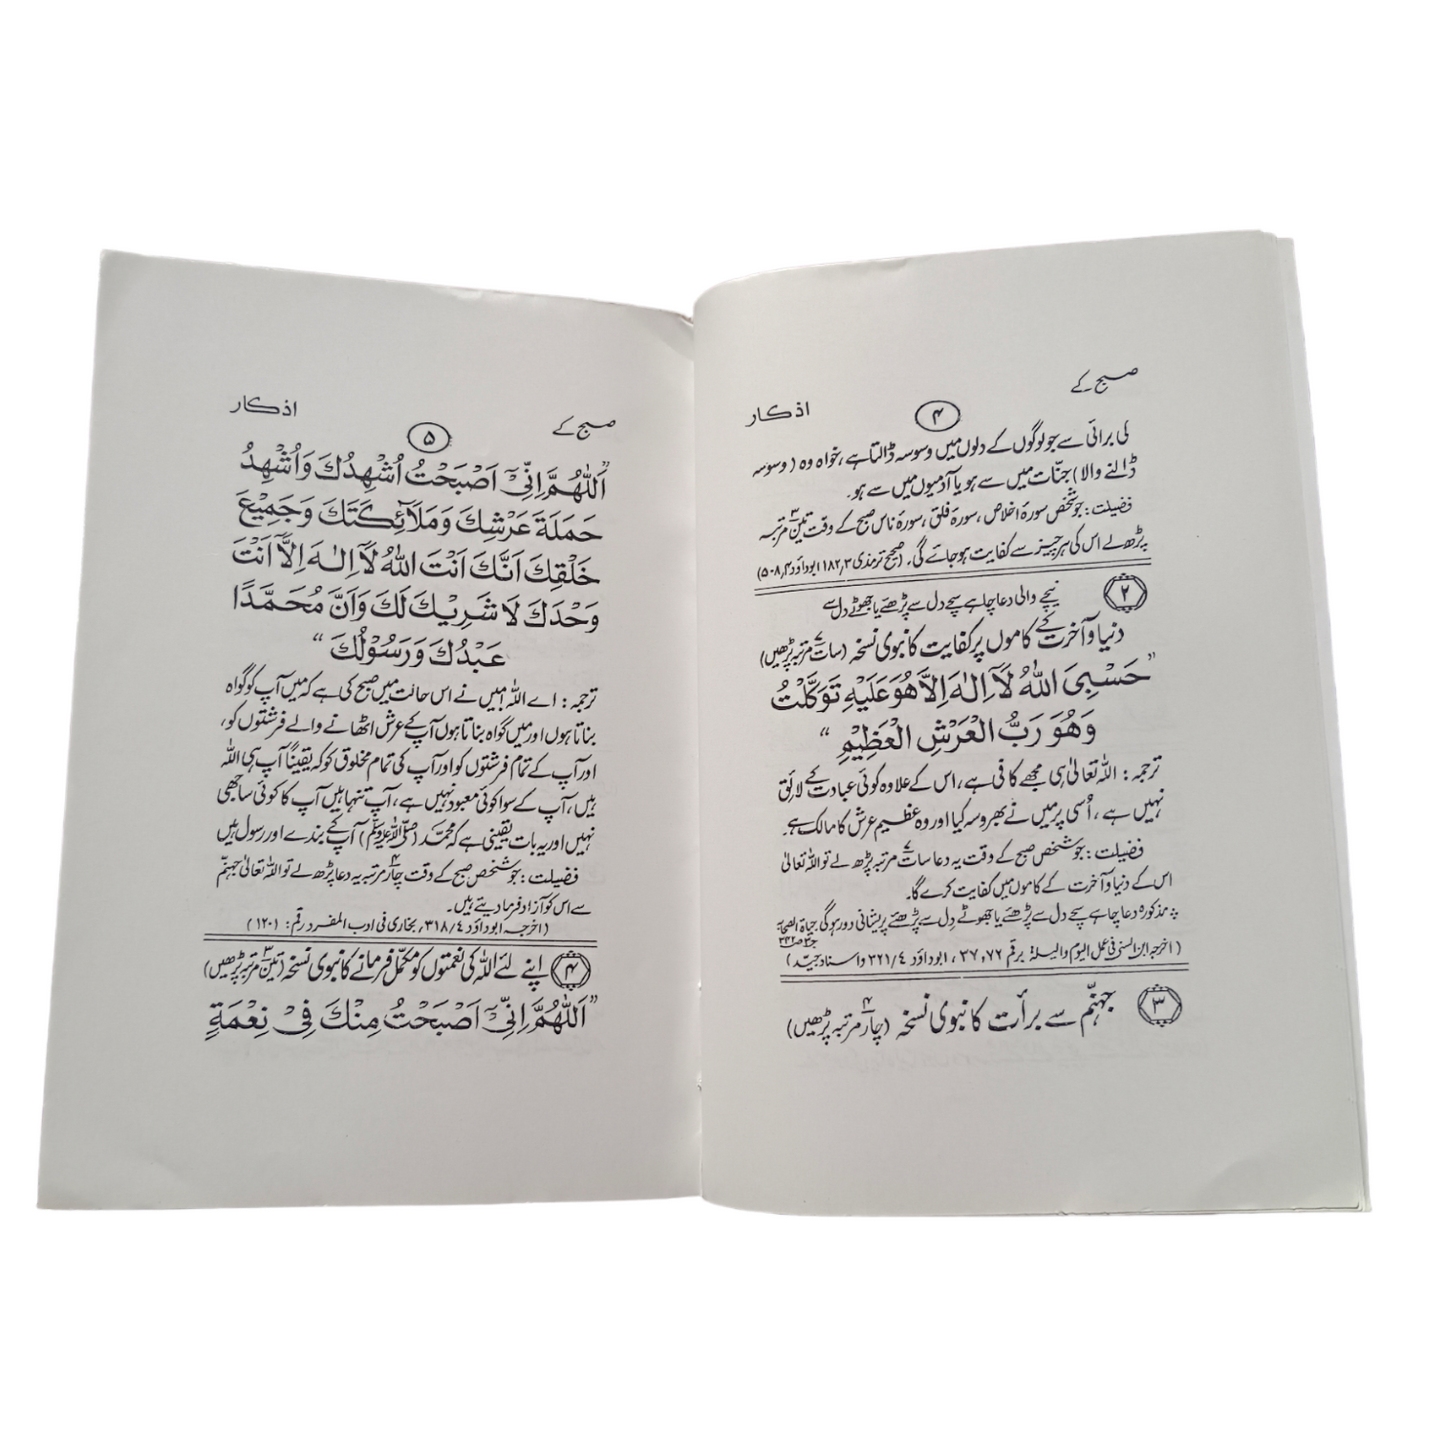 صبح کے
۴
اذکار
کی برائی سے جو لوگوں کے دلوں میں وسوسہ ڈالتا ہے، خواہ وہ (وسوسہ
ڈالنے والا) جنّات میں سے ہو یا آدمیوں میں سے ہو۔
فضیلت: جو شخص سورۂ اخلاص، سورۂ فلق، سورۂ ناس صبح کے وقت تین ۳ مرتبہ
پڑھ لے اس کی ہر چیز سے کفایت ہو جائے گی۔ (صحیح ترمذی ۱۸۲٫۳ ابوداؤد ۵۰۸٫۴)
۲
نیچے والی دعا چاہے سچے دل سے پڑھے یا جھوٹے دل سے
دنیا و آخرت کے کاموں پر کفایت کا نبوی نسخہ (سات ۷ مرتبہ پڑھیں)
”حَسْبِیَ اللّٰهُ لَاۤ اِلٰهَ اِلَّا هُوَ عَلَيْهِ تَوَكَّلْتُ
وَهُوَ رَبُّ الْعَرْشِ الْعَظِيْمِ“
ترجمہ: اللہ تعالیٰ ہی مجھے کافی ہے، اس کے علاوہ کوئی عبادت کے لائق
نہیں ہے، اُسی پر میں نے بھروسہ کیا اور وہ عظیم عرش کا مالک ہے۔
فضیلت: جو شخص صبح کے وقت یہ دعا سات ۷ مرتبہ پڑھ لے تو اللہ تعالیٰ
اس کے دنیا و آخرت کے کاموں میں کفایت کرے گا۔
مذکورہ دعا چاہے سچے دل سے پڑھے یا جھوٹے دل سے پڑھے پریشانی دور ہوگی حیاۃ الصحابہ
(اخرجہ ابن السنی فی عمل الیوم واللیلۃ برقم ۳۷٫۷۲، ابوداؤد ۳۲۱/۴ واسنادہ جیّد)
۳
جہنّم سے برأت کا نبوی نسخہ (چار ۴ مرتبہ پڑھیں)
صبح کے
۵
اذکار
”اَللّٰهُمَّ اِنِّیْۤ اَصْبَحْتُ اُشْهِدُكَ وَاُشْهِدُ
حَمَلَةَ عَرْشِكَ وَمَلَآئِكَتَكَ وَجَمِيْعَ
خَلْقِكَ اَنَّكَ اَنْتَ اللّٰهُ لَاۤ اِلٰهَ اِلَّاۤ اَنْتَ
وَحْدَكَ لَا شَرِيْكَ لَكَ وَاَنَّ مُحَمَّدًا
عَبْدُكَ وَرَسُوْلُكَ“
ترجمہ: اے اللہ! میں نے اس حالت میں صبح کی ہے کہ میں آپ کو گواہ
بناتا ہوں اور میں گواہ بناتا ہوں آپ کے عرش اٹھانے والے فرشتوں کو،
اور آپ کے تمام فرشتوں کو اور آپ کی تمام مخلوق کو کہ یقیناً آپ ہی اللہ
ہیں، آپ کے سوا کوئی معبود نہیں ہے، آپ تنہا ہیں آپ کا کوئی ساجھی
نہیں اور یہ بات یقینی ہے کہ محمّد (ﷺ) آپ کے بندے اور رسول ہیں
فضیلت: جو شخص صبح کے وقت چار ۴ مرتبہ یہ دعا پڑھ لے تو اللہ تعالیٰ جہنّم
سے اس کو آزاد فرما دیتے ہیں۔
(اخرجہ ابوداؤد ۳۱۸/۴، بخاری فی ادب المفرد رقم: ۱۲۰۱)
۴
اپنے لئے اللہ کی نعمتوں کو مکمّل فرمانے کا نبوی نسخہ (تین ۳ مرتبہ پڑھیں)
”اَللّٰهُمَّ اِنِّیْۤ اَصْبَحْتُ مِنْكَ فِیْ نِعْمَةٍ